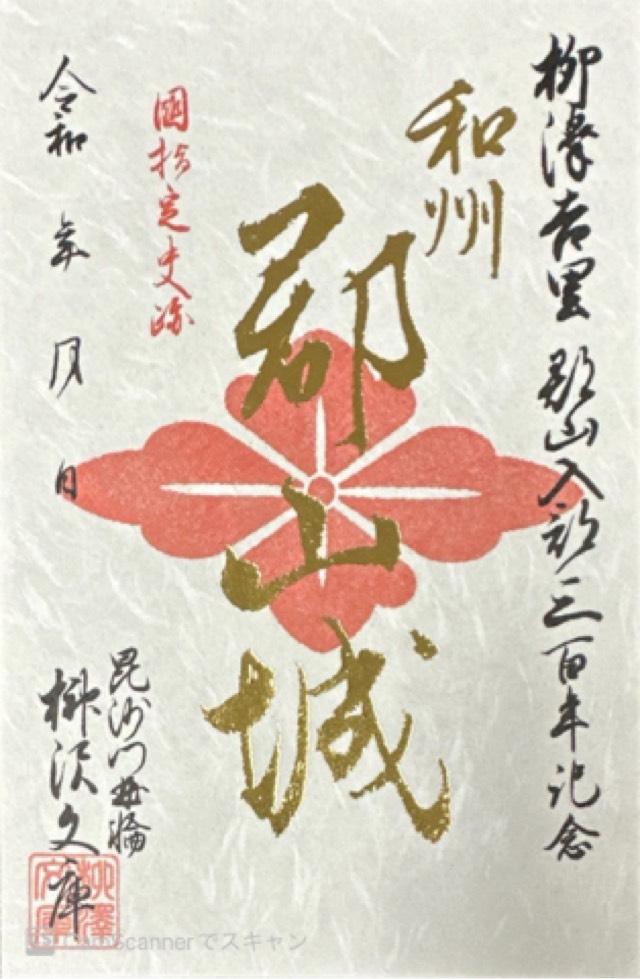 柳澤吉里 郡山入部三百年記念
和州
郡山城
國指定史跡
令和 年 月 日
毘沙門曲輪
柳沢文庫
柳澤文庫
CamScannerでスキャン